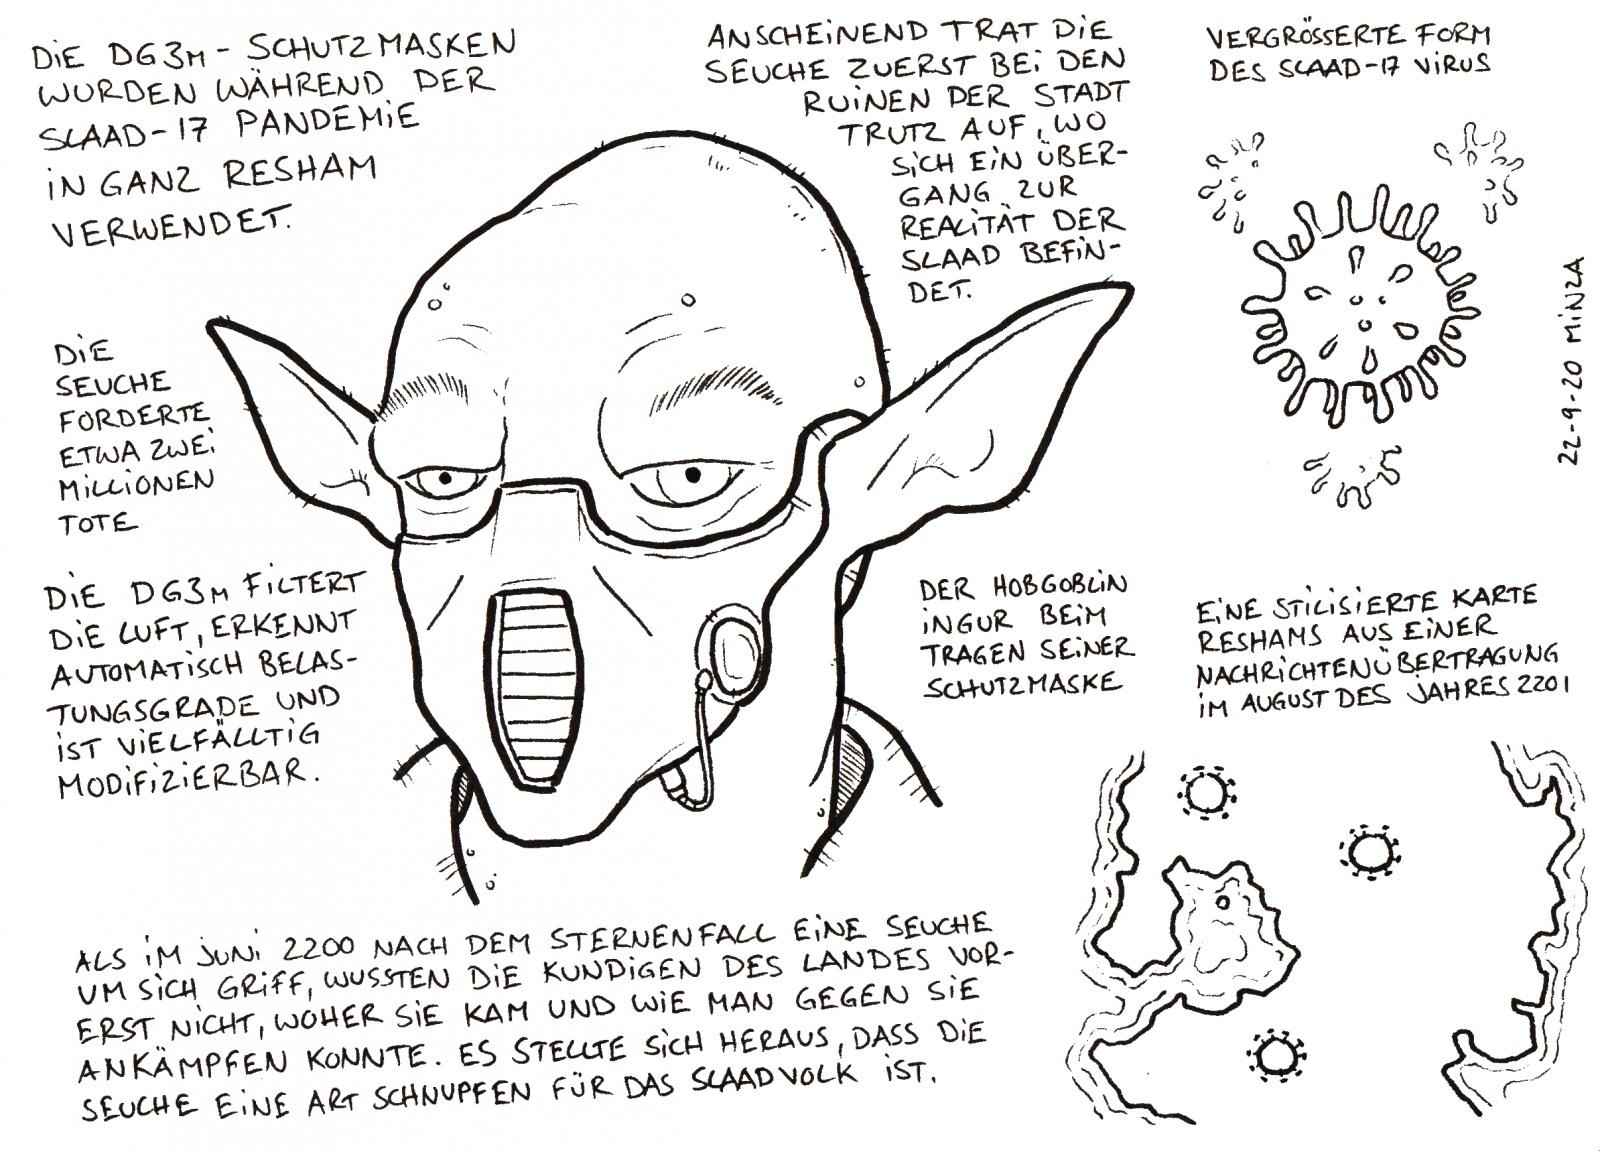 DIE DG3M - SCHUTZMASKEN
WURDEN WÄHREND DER
SLAAD-17 PANDEMIE
IN GANZ RESHAM
VERWENDET.
ANSCHEINEND TRAT DIE
SEUCHE ZUERST BEI DEN
RUINEN DER STADT
TRUTZ AUF, WO
SICH EIN ÜBER-
GANG ZUR
REALITÄT DER
SLAAD BEFIN-
DET.
VERGRÖSSERTE FORM
DES SLAAD-17 VIRUS
22-9-20 MINZA
DIE
SEUCHE
FORDERTE
ETWA ZWEI
MILLIONEN
TOTE
DIE DG3M FILTERT
DIE LUFT, ERKENNT
AUTOMATISCH BELAS-
TUNGSGRADE UND
IST VIELFÄLLTIG
MODIFIZIERBAR.
DER HOBGOBLIN
INGUR BEIM
TRAGEN SEINER
SCHUTZMASKE
EINE STILISIERTE KARTE
RESHAMS AUS EINER
NACHRICHTENÜBERTRAGUNG
IM AUGUST DES JAHRES 2201
ALS IM JUNI 2200 NACH DEM STERNENFALL EINE SEUCHE
UM SICH GRIFF, WUSSTEN DIE KUNDIGEN DES LANDES VOR-
ERST NICHT, WOHER SIE KAM UND WIE MAN GEGEN SIE
ANKÄMPFEN KONNTE. ES STELLTE SICH HERAUS, DASS DIE
SEUCHE EINE ART SCHNUPFEN FÜR DAS SLAADVOLK IST.